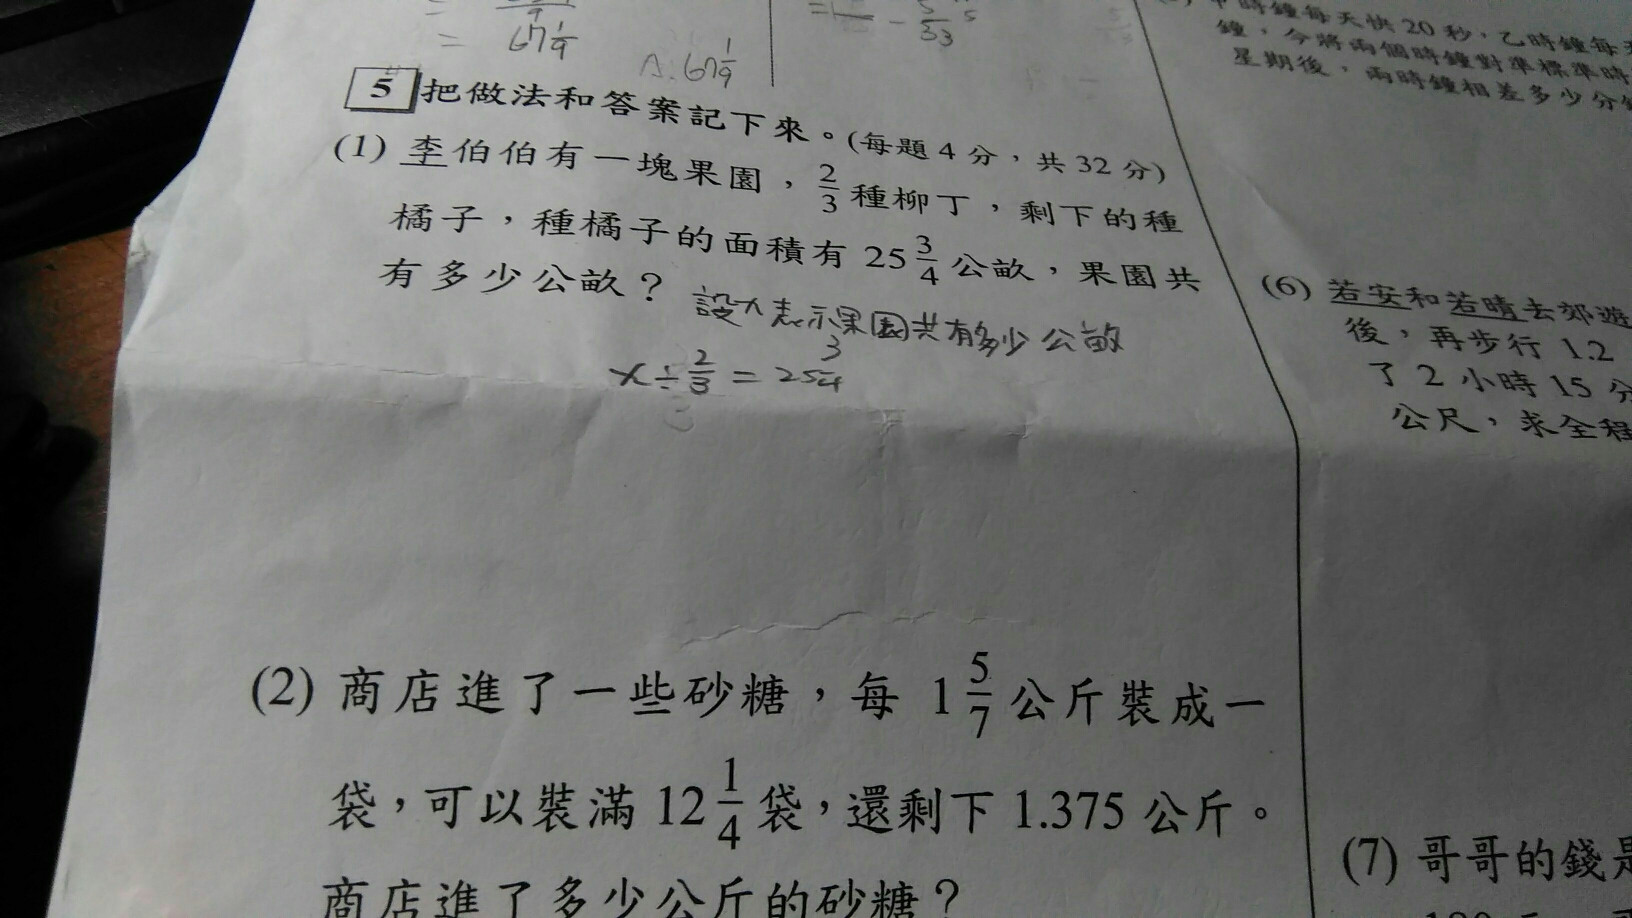 = 67 1/9
A: 67 1/9
5 把做法和答案記下來。(每題 4 分，共 32 分)
(1) 李伯伯有一塊果園，2/3 種柳丁，剩下的種
橘子，種橘子的面積有 25 3/4 公畝，果園共
有多少公畝？
設x表示果園共有多少公畝
x ÷ 2/3 = 25 3/4
(2) 商店進了一些砂糖，每 1 5/7 公斤裝成一
袋，可以裝滿 12 1/4 袋，還剩下 1.375 公斤。
商店進了多少公斤的砂糖？
時鐘每天快 20 秒，乙時鐘每
鐘，今將兩個時鐘對準標準時
星期後，兩時鐘相差多少分
(6) 若安和若晴去郊遊
後，再步行 1.2
了 2 小時 15 分
公尺，求全程
(7) 哥哥的錢是